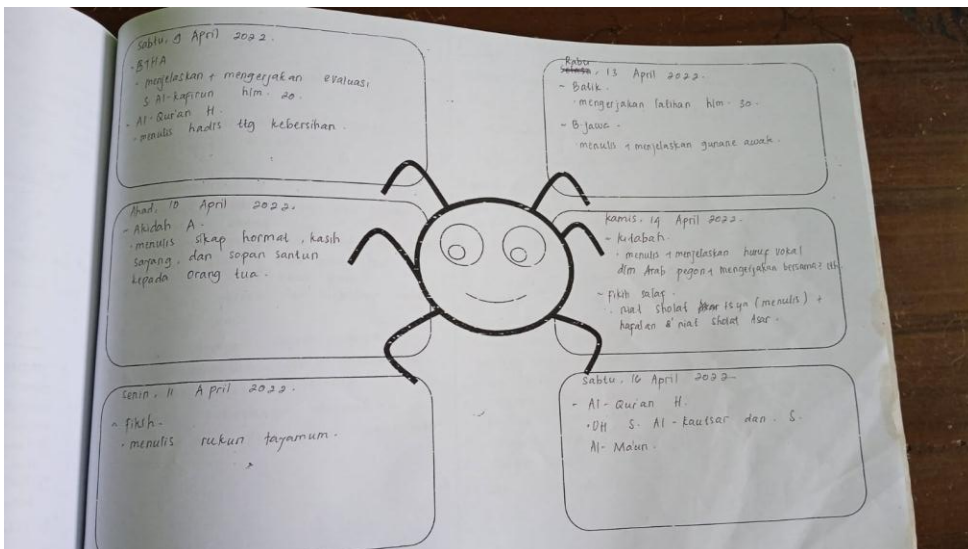 Sabtu, 9 April 2022.
- BTHA
- menjelaskan + mengerjakan evaluasi
S. Al-kafirun hlm. 20.
- Al-Qur'an H.
- menulis hadis ttg kebersihan.
Ahad, 10 April 2022.
- Akidah A.
- menulis sikap hormat, kasih
sayang, dan sopan santun
kepada orang tua.
Senin, 11 April 2022.
- fikih.
- menulis rukun tayamum.
Rabu
Selasa, 13 April 2022.
- Batik.
· mengerjakan latihan hlm. 30.
- B. jawa.
menulis + menjelaskan gunane awak.
kamis, 14 April 2022.
- kitabah.
· menulis + menjelaskan huruf vokal
dlm Arab pegon + mengerjakan bersama²
- Fikih salaf.
· niat sholat Isya (menulis) +
hapalan niat sholat Asar.
Sabtu, 16 April 2022
- Al-Qur'an H.
· S. Al-kautsar dan S.
Al-Ma'un.